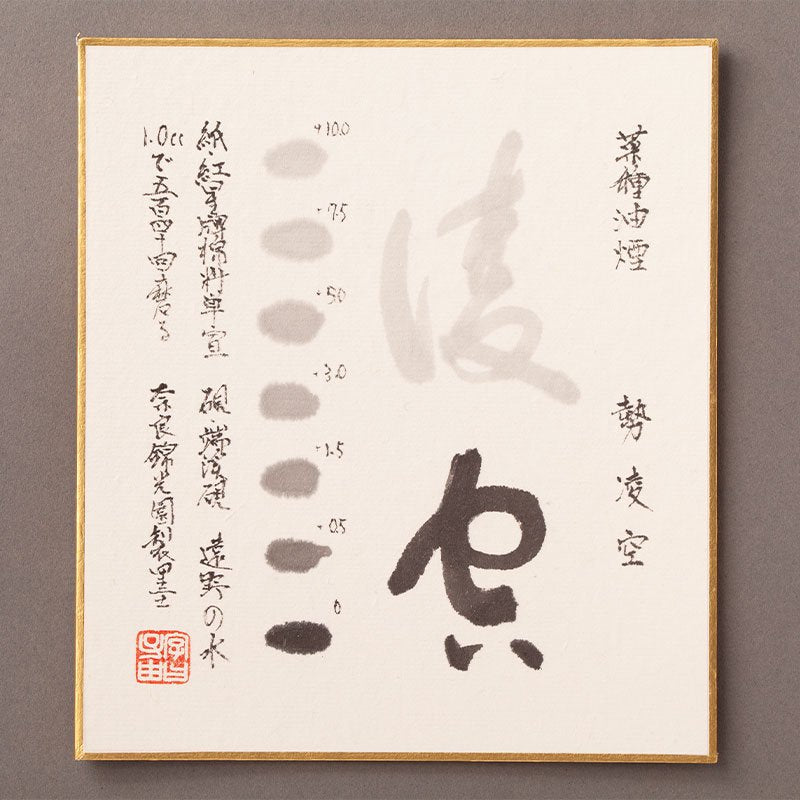 菜種油煙　勢凌空
凌
空
+10.0
+7.5
+5.0
+3.0
+1.5
+0.5
0
紙・紅星牌棉料単宣　硯・端渓硯　遠野の水
1.0ccで五百四十回磨る　奈良錦光園製墨